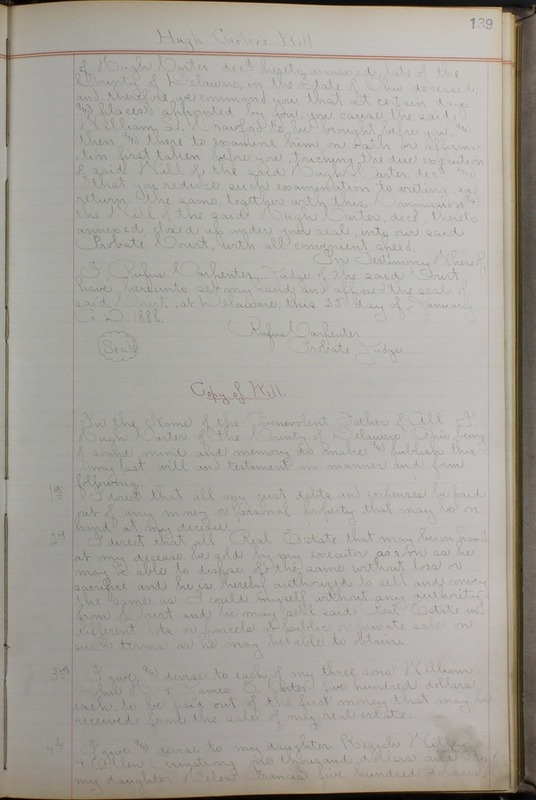 139
Hugh Carter Will
of Hugh Carter decd hereto annexed, late of the
County of Delaware, in the State of Ohio deceased;
and therefore, we command you that at certain days
& places appointed by you, you cause the said
William S. Crawford to be brought before you, &
then & there to examine him on oath or affirma-
tion first taken before you, touching the due execution
of said Will of the said Hugh Carter, decd &
that you reduce such examination to writing, and
return the same, together with this Commission &
the Will of the said Hugh Carter, decd, thereto
annexed closed up under your seal, unto our said
Probate Court, with all convenient speed.
In Testimony Whereof,
I, Rufus Carpenter, Judge of the said Court
have hereunto set my hand and affixed the seal of
said Court, at Delaware, this 25 day of January
A. D. 1888.
Rufus Carpenter
(Seal) Probate Judge
Copy of Will.
In the Name of the Benevolent Father of All I
Hugh Carter of the County of Delaware Ohio being
of sound mind and memory do make & publish this
my last will and testament in manner and form
following.
1st I direct that all my just debts and expenses be paid
out of any money or Personal property that may be on
hand at my decease.
2d I direct that all Real Estate that may be on hand
at my decease be sold by my executor as soon as he
may be able to dispose of the same without loss or
sacrifice and he is hereby authorized to sell and convey
the same as I could myself without any authority
from Court and he may sell said real Estate in
different lots or parcels at public or private sale on
such terms as he may be able to obtain.
3rd I give & devise to each of my three sons William
& James Carter five hundred dollars
each to be paid out of the first money that may be
received from the sale of my real estate.
4th I give & devise to my daughter
& Ellen Armstrong one thousand dollars and to
my daughter Helen Francis five hundred